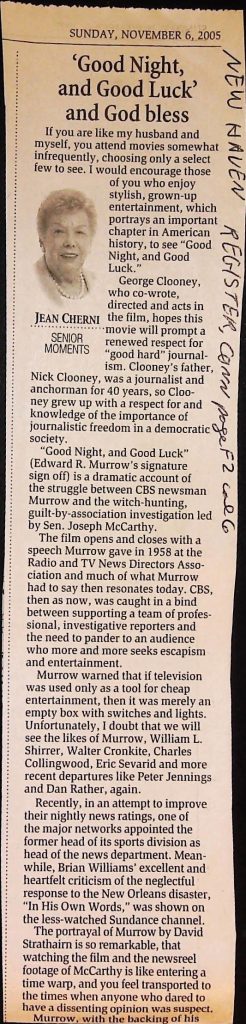 SUNDAY, NOVEMBER 6, 2005
'Good Night,
and Good Luck'
and God bless
If you are like my husband and
myself, you attend movies somewhat
infrequently, choosing only a select
few to see. I would encourage those
of you who enjoy
stylish, grown-up
entertainment, which
portrays an important
chapter in American
history, to see "Good
Night, and Good
Luck."
George Clooney,
who co-wrote,
directed and acts in
the film, hopes this
movie will prompt a
renewed respect for
"good hard" journal-
ism. Clooney's father,
JEAN CHERNI
SENIOR
MOMENTS
Nick Clooney, was a journalist and
anchorman for 40 years, so Cloo-
ney grew up with a respect for and
knowledge of the importance of
journalistic freedom in a democratic
society.
"Good Night, and Good Luck"
(Edward R. Murrow's signature
sign off) is a dramatic account of
the struggle between CBS newsman
Murrow and the witch-hunting,
guilt-by-association investigation led
by Sen. Joseph McCarthy.
The film opens and closes with a
speech Murrow gave in 1958 at the
Radio and TV News Directors Asso-
ciation and much of what Murrow
had to say then resonates today. CBS,
then as now, was caught in a bind
between supporting a team of profes-
sional, investigative reporters and
the need to pander to an audience
who more and more seeks escapism
and entertainment.
Murrow warned that if television
was used only as a tool for cheap
entertainment, then it was merely an
empty box with switches and lights.
Unfortunately, I doubt that we will
see the likes of Murrow, William L.
Shirrer, Walter Cronkite, Charles
Collingwood, Eric Sevarid and more
recent departures like Peter Jennings
and Dan Rather, again.
Recently, in an attempt to improve
their nightly news ratings, one of
the major networks appointed the
former head of its sports division as
head of the news department. Mean-
while, Brian Williams' excellent and
heartfelt criticism of the neglectful
response to the New Orleans disaster,
"In His Own Words," was shown on
the less-watched Sundance channel.
The portrayal of Murrow by David
Strathairn is so remarkable, that
watching the film and the newsreel
footage of McCarthy is like entering a
time warp, and you feel transported to
the times when anyone who dared to
have a dissenting opinion was suspect.
Murrow, with the backing of his
NEW HAVEN REGISTER, CONN page F2 col 6